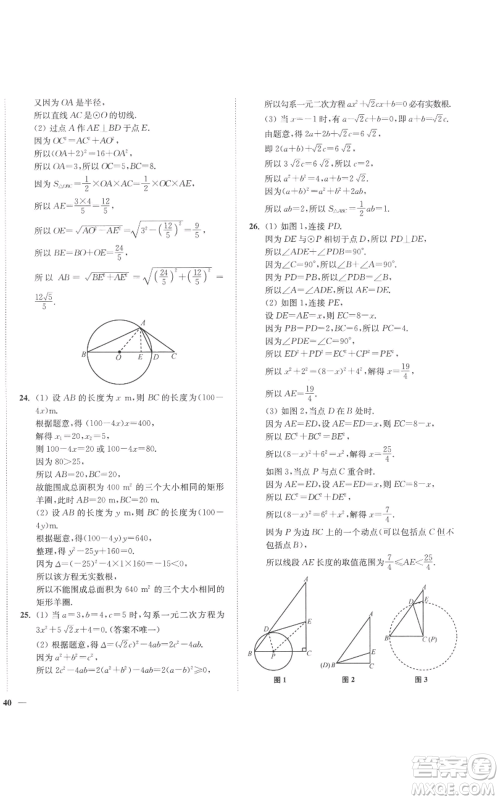 又因为 OA 是半径,
所以直线 AC 是⊙O 的切线.
(2) 过点 A 作 AE⊥BD 于点 E.
因为 OC²=AC²+AO²,
所以 (OA+2)²=16+OA²,
所以 OA=3, OC=5, BC=8.
因为 S△OAC=1/2×OA×AC=1/2×OC×AE,
所以 AE=3×4/5=12/5,
所以 OE=√(AO²-AE²)=√(3²-(12/5)²)=9/5,
所以 BE=BO+OE=24/5,
所以 AB=√(BE²+AE²)=√((24/5)²+(12/5)²)=
12√5/5.
A
B O E D C
24. (1) 设 AB 的长度为 x m, 则 BC 的长度为(100-
4x)m.
根据题意, 得(100-4x)x=400,
解得 x₁=20, x₂=5.
则 100-4x=20 或 100-4x=80.
因为 80>25,
所以 AB=20, BC=20.
故能围成总面积为 400 m² 的三个大小相同的矩形
羊圈.
(2) 设 AB 的长度为 y m, 则 BC 的长度为(100-
4y)m.
根据题意, 得(100-4y)y=640,
整理, 得 y²-25y+160=0.
因为 Δ=(-25)²-4×1×160=-15<0,
所以该方程无实数根.
所以不能围成总面积为 640 m² 的三个大小相同的
矩形羊圈.
25. (1) 当 a=3, b=4, c=5 时, 勾系一元二次方程为
3x²+5√2x+4=0. (答案不唯一)
(2) 根据题意, 得 Δ=(√2c)²-4ab=2c²-4ab.
因为 a²+b²=c²,
所以 2c²-4ab=2(a²+b²)-4ab=2(a-b)²≥0,
所以勾系一元二次方程 ax²+√2cx+b=0 必有实数根.
(3) 当 x=-1 时, 有 a-√2c+b=0, 即 a+b=√2c.
由题意, 得 2a+2b+√2c=6√2,
即 2(a+b)+√2c=6√2,
所以 3√2c=6√2, 所以 c=2,
所以 a²+b²=c²=4, a+b=2√2.
因为 (a+b)²=a²+b²+2ab,
所以 ab=2, 所以 S△ABC=1/2ab=1.
26. (1) 如图 1, 连接 PD.
因为 DE 与⊙P 相切于点 D, 所以 PD⊥DE,
所以∠ADE+∠PDB=90°.
因为∠C=90°, 所以∠B+∠A=90°.
因为 PD=PB, 所以∠PDB=∠B,
所以∠A=∠ADE, 所以 AE=DE.
(2) 如图 1, 连接 PE,
设 DE=AE=x, 则 EC=8-x.
因为∠PDE=∠C=90°,
所以 ED²+PD²=EC²+CP²=PE²,
所以 x²+2²=(8-x)²+4², 解得 x=19/4,
所以 AE=19/4.
(3) 如图 2, 当点 P 与点 B 重合时,
因为 AE=DE, 设 AE=ED=x, 则 EC=8-x,
所以 EC²+BC²=DE²,
所以(8-x)²+6²=x², 解得 x=25/4.
如图 3, 当点 P 与点 C 重合时,
因为 AE=DE, 设 AE=DE=x, 则 EC=8-x,
所以 EC²=DC²+DE²,
所以(8-x)²=6²+x², 解得 x=7/4.
因为 P 为边 BC 上的一个动点(可以与点 C 重合但不
与点 B 重合),
所以线段 AE 长度的取值范围为 7/4≤AE<25/4.
A D E B P C
图 1
A E (D)B C
图 2
A D E B C(P)
图 3
40 —